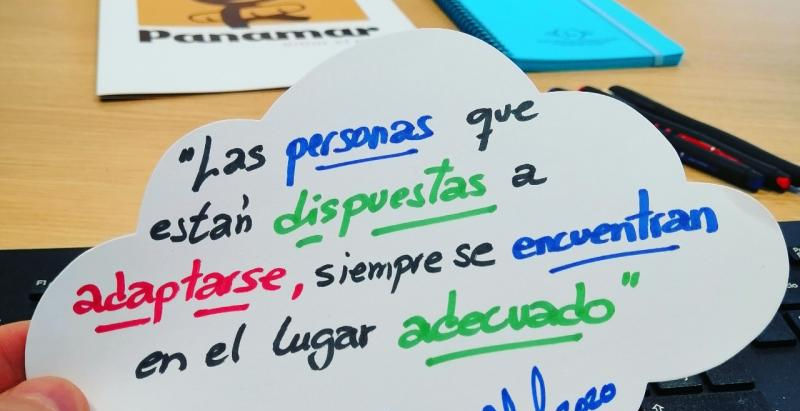 Panamar
"Las personas que
están dispuestas a
adaptarse, siempre se encuentran
en el lugar adecuado"
2020